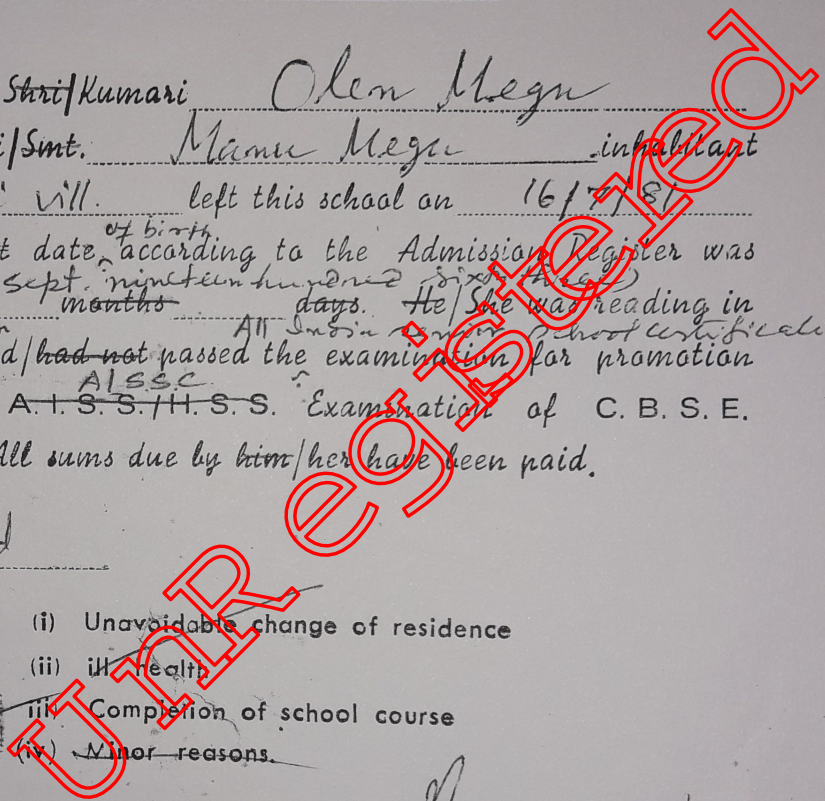 Shri/Kumari Olen Megu
i/Smt. Manu Megu inhabitant
vill. left this school on 16/7/81
of birth
t date, according to the Admission Register was
sept. nineteen hundred sixty three)
months days. He/She was reading in
All India senior school certificate
d/had not passed the examination for promotion
AISSC
A. I. S. S./H. S. S. Examination of C. B. S. E.
All sums due by him/her have been paid.
(i) Unavoidable change of residence
(ii) ill health
iii) Completion of school course
(iv) Minor reasons.
UnRegistered